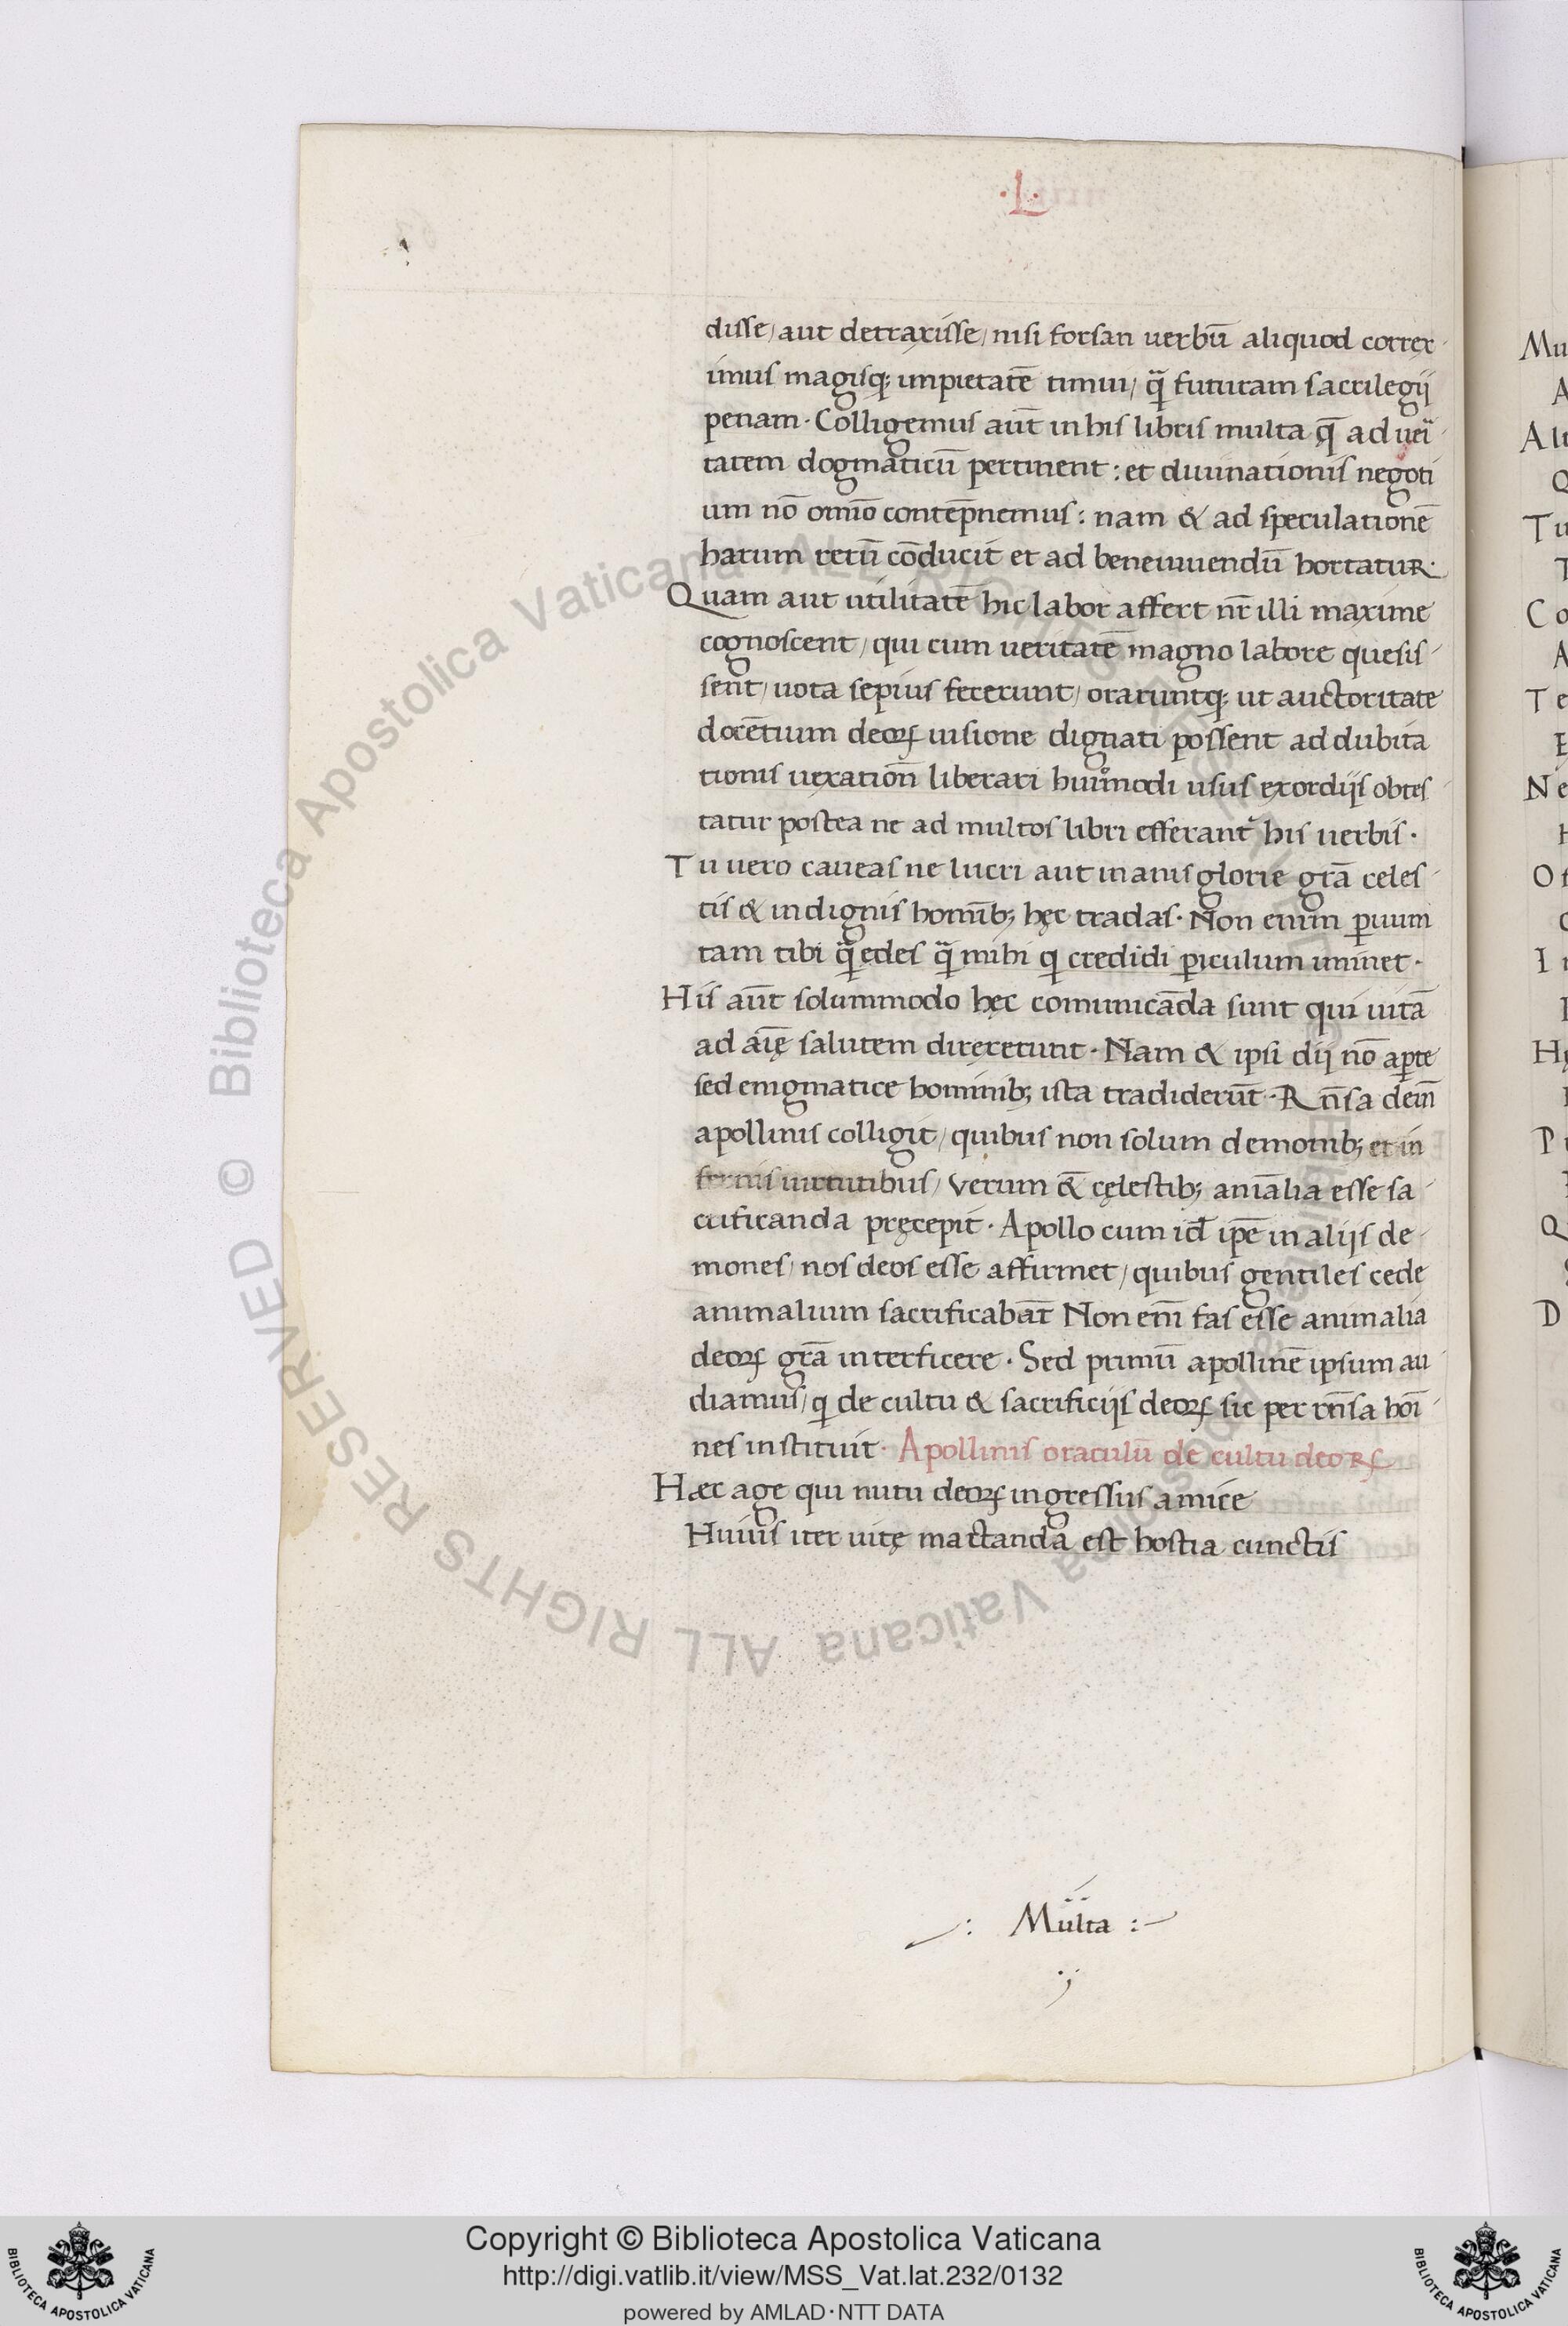 ·L·
disse/ aut detraxisse/ nisi forsan uerbū aliquod correx
imus magisq; impietatē timui/ q̄ futuram sacrilegij
penam· Colligemus aūt in his libris multa q̄ ad uei
tatem dogmaticū pertinent: et diuinationis negoti
um nō omīo contep̄nemus: nam & ad speculationē
harum rerū cōducit et ad beneiuuendū hortatuR·
Quam aut utilitatē hic labor affert nr̄ illi maxime
cognoscent/ qui cum ueritatē magno labore quesis
sent/ uota sepius fecerunt/ oraruntq; ut auctoritate
docētium deoꝝ uisione dignati possent ad dubita
tionis uexatioñ liberari huiꝰmodi usus exordijs obtes
tatur postea ne ad multos libri efferant᷑ his uerbis·
Tu uero caueas ne lucri aut inanis glorie gr̄a celes
tis & indignis homīb; hęc tradas· Non enim ꝑuum
tam tibi q̄ edes q̄ mihi q credidi ꝑiculum iminet·
His aūt solummodo hęc comunicāda sunt qui uitā
ad aīę salutem direxerunt· Nam & ipsi dij nō aꝑte
sed enigmatice hominib; ista tradiderūt· Rn̄sa dein̄
apollinis colligit/ quibus non solum demonib; et in
fernis uirtutibus/ verum & cęlestib; aniālia esse sa
crificanda pręcepit· Apollo cum id ip̄e in alijs de
mones/ nos deos esse affirmet/ quibus gentiles cede
animalium sacrificabāt Non enī fas esse animalia
deoꝝ gr̄a interficere· Sed primū apollinē ipsum au
diamus/ q de cultu & sacrificijs deoꝝ sic per rn̄sa hoī
nes instituit· Apollinis oraculū de cultu deoꝝ
Hæc age qui nutu deoꝝ ingressus amice
Huius iter uitę mactanda est hostia cunctis
Multa
Mu
A
Al
Q
Tu
T
Co
A
Te
E
Ne
H
Of
I
Hę
P
Q
D
© Biblioteca Apostolica Vaticana ALL RIGHTS RESERVED
BIBLIOTECA APOSTOLICA VATICANA
Copyright © Biblioteca Apostolica Vaticana
http://digi.vatlib.it/view/MSS_Vat.lat.232/0132
powered by AMLAD·NTT DATA
BIBLIOTECA APOSTOLICA VATICANA